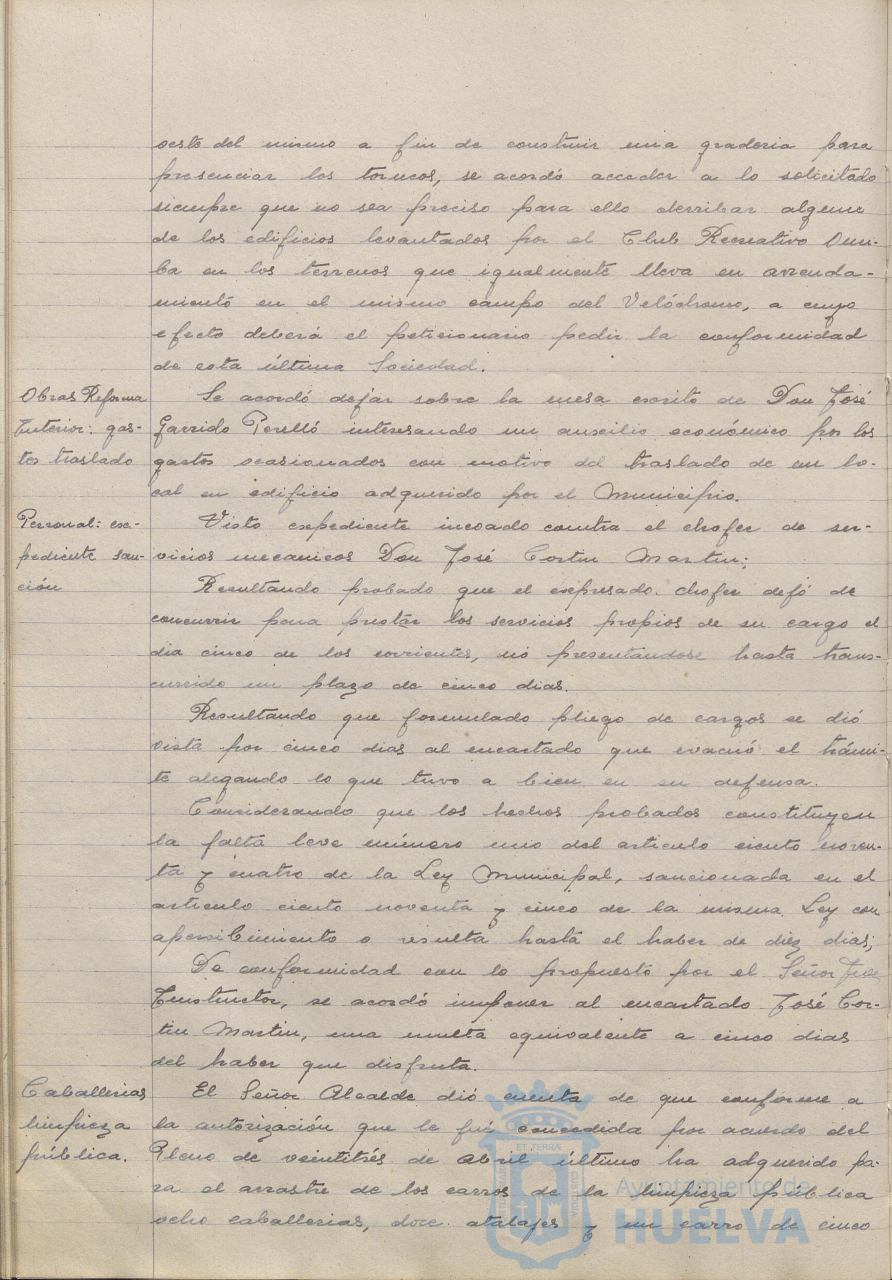 oeste del mismo a fin de construir una graderia para
presenciar los torneos, se acordó acceder a lo solicitado
siempre que no sea preciso para ello derribar alguno
de los edificios levantados por el Club Recreativo Onu-
ba en los terrenos que igualmente lleva en arrenda-
miento en el mismo campo del Velódromo, a cuyo
efecto deberá el peticionario pedir la conformidad
de esta última Sociedad.
Obras Reforma
Interior: gas-
tos traslado
Se acordó dejar sobre la mesa escrito de Don José
Garrido Perelló interesando un auxilio económico por los
gastos ocasionados con motivo del traslado de un lo-
cal en edificio adquirido por el Municipio.
Personal: ex-
pediente san-
ción
Visto expediente incoado contra el chofer de ser-
vicios mecanicos Don José Martin;
Resultando probado que el expresado chofer dejó de
concurrir para prestar los servicios propios de su cargo el
dia cinco de los corrientes, no presentandose hasta trans-
currido un plazo de cinco dias.
Resultando que formulado pliego de cargos se dió
vista por cinco dias al encartado que evacuó el trámi-
te alegando lo que tuvo a bien en su defensa.
Considerando que los hechos probados constituyen
la falta leve número uno del articulo ciento noven-
ta y cuatro de la Ley Municipal, sancionada en el
articulo ciento noventa y cinco de la misma Ley con
apercibimiento o multa hasta el haber de diez dias;
De conformidad con lo propuesto por el Señor Juez
Instructor, se acordó imponer al encartado José
Martin, una multa equivalente a cinco dias
del haber que disfruta.
Caballerias
limpieza
pública.
El Señor Alcalde dió cuenta de que conforme a
la autorización que le fué concedida por acuerdo del
Pleno de veintitrés de abril último ha adquirido pa-
ra el arrastre de los carros de la limpieza pública
ocho caballerias, doce atalajes y un carro de cinco
Ayuntamiento de
HUELVA